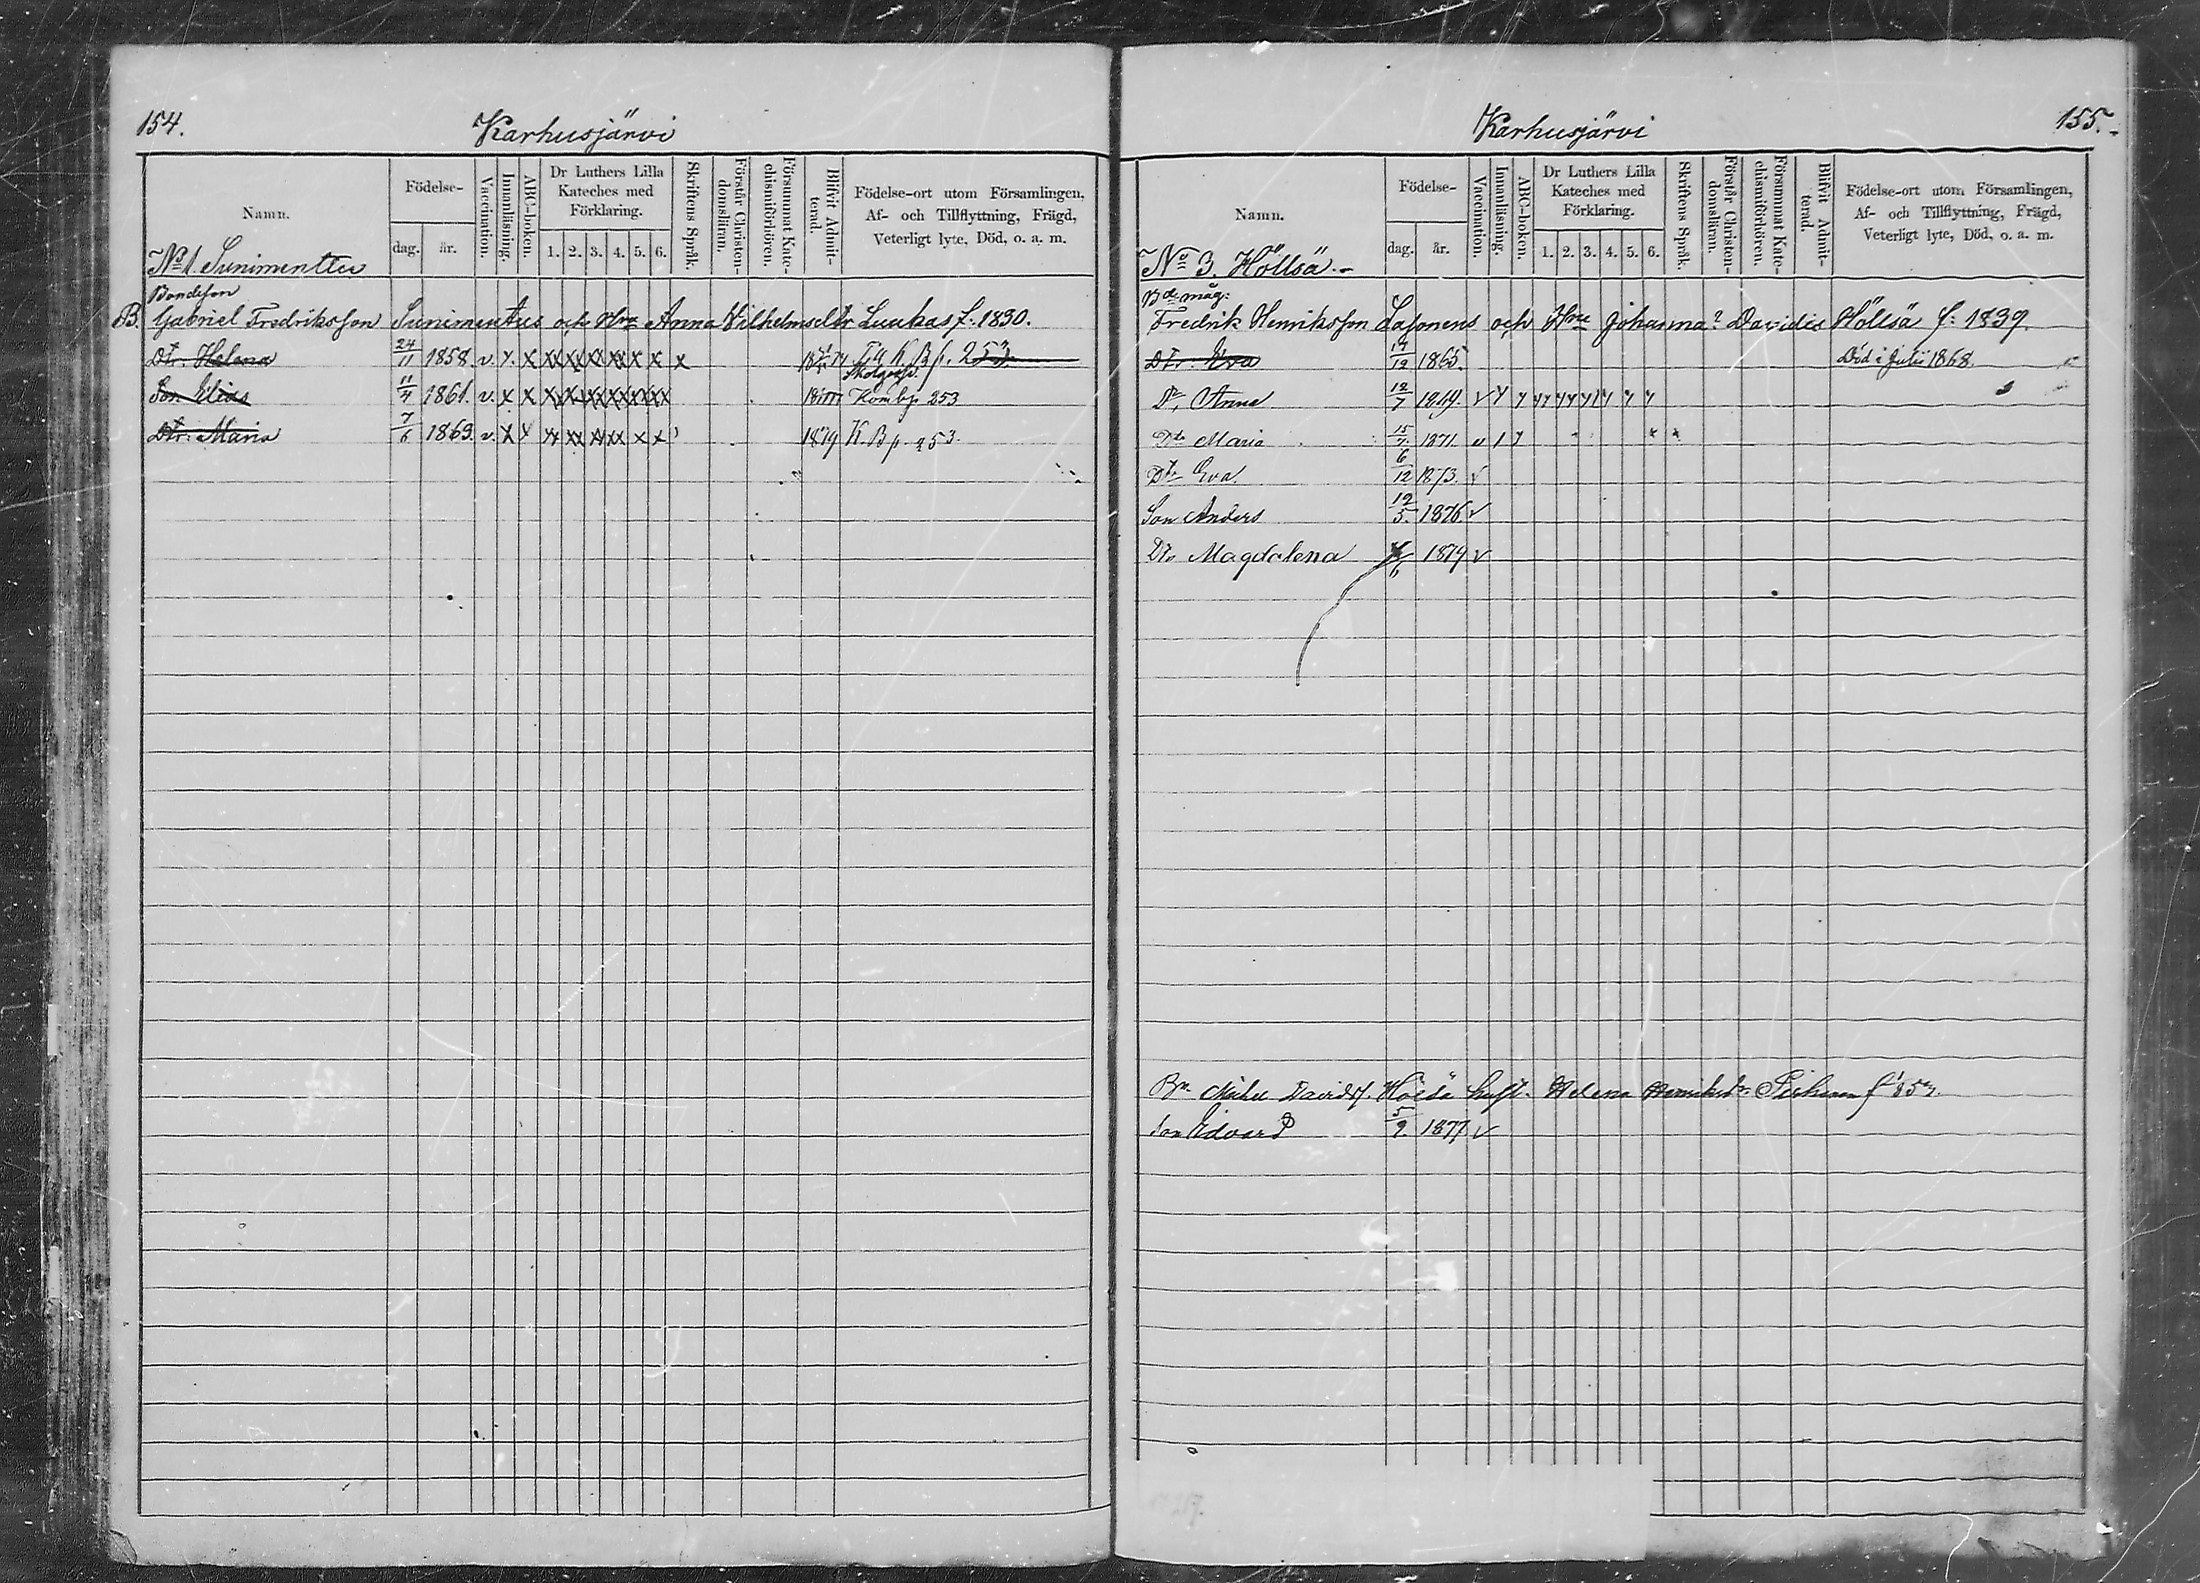 154.
Karhusjärvi
Namn.
Födelse-
dag.
år.
Vaccination.
Innanläsning.
ABC-boken.
Dr Luthers Lilla
Kateches med
Förklaring.
1. 2. 3. 4. 5. 6.
Skriftens Språk.
Förstår Christen-
domsläran.
Försummat Kate-
chismiförhören.
Blifvit Admit-
terad.
Födelse-ort utom Församlingen,
Af- och Tillflyttning, Frägd,
Veterligt lyte, Död, o. a. m.
No 1. Sunimenttu
Bondeson
B. Gabriel Fredriksson Sunimentus och Hru Anna Vilhelmsdtr Luukas f. 1830.
Dtr. Helena 24/11 1858. v. K. B. p. 253.
Son Elias 11/4 1861. v. x x Komb. p. 253
Dtr. Maria 7/6 1863. v. x 1879 K. B p. 253.
Karhusjärvi
155.
Namn.
Födelse-
dag.
år.
Vaccination.
Innanläsning.
ABC-boken.
Dr Luthers Lilla
Kateches med
Förklaring.
1. 2. 3. 4. 5. 6.
Skriftens Språk.
Förstår Christen-
domsläran.
Försummat Kate-
chismiförhören.
Blifvit Admit-
terad.
Födelse-ort utom Församlingen,
Af- och Tillflyttning, Frägd,
Veterligt lyte, Död, o. a. m.
No 3. Höllsä.-
Bde måg:
Fredrik Henriksson Laponens och Hru Johanna? Davidis Höllsä f: 1839.
Dtr. Eva 1865. Död i Julii 1868.
Dr. Anna 12/7 1869.
Dtr Maria 15/7 1871.
Dtr Eva. 6/12 1873. v
Son Anders 12/5. 1876. v
Dtr Magdalena 1879 v
Bn. Michel Davidsf. Hölsä hust. Helena
Son Edvard 5/9. 1877 v